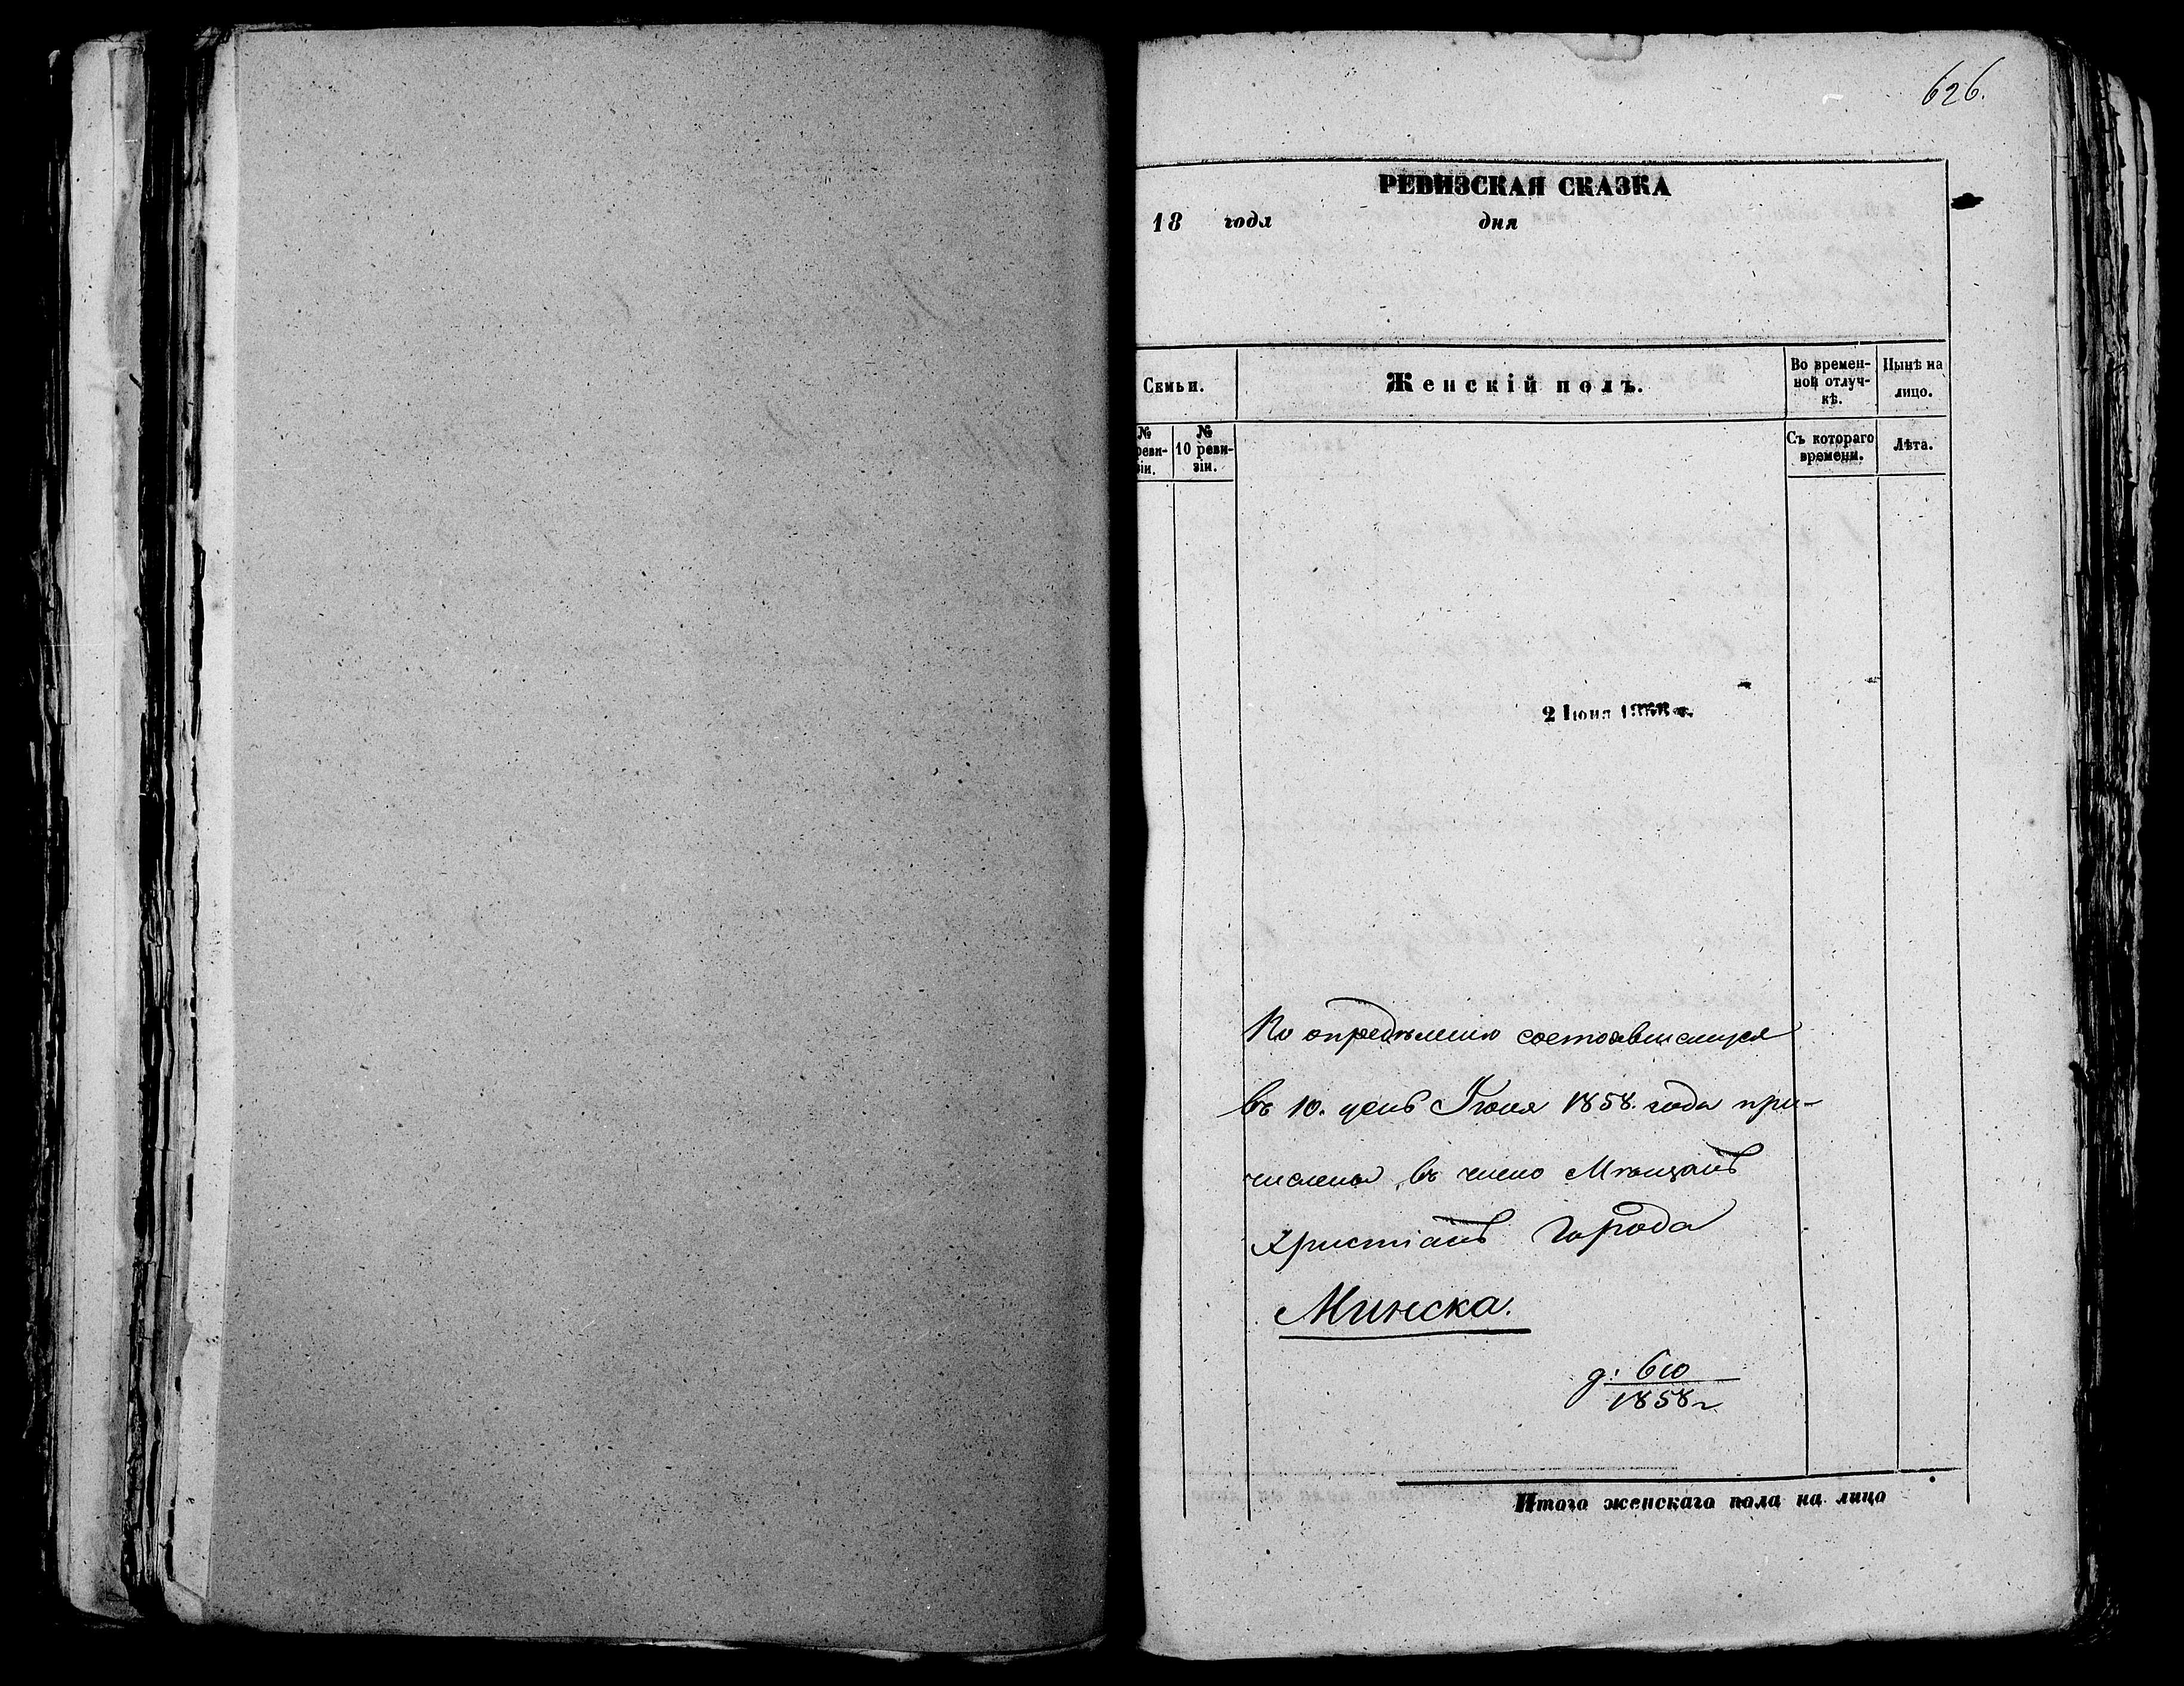 626.
РЕВИЗСКАЯ СКАЗКА
18 года дня
Семьи.
Женскій полъ.
Во времен-
ной отлуч-
кѣ.
Нынѣ на
лицо.
№
реви-
зіи.
№
10 реви-
зіи.
Съ котораго
времени.
Лѣта.
2 Іюня
По опредѣленію состоявшемуся
въ 10. день Іюня 1858. года при-
числены въ число Мѣщанъ
Христіанъ Города
Минска.
д: 610
1858 г
Итого женскаго пола на лицо